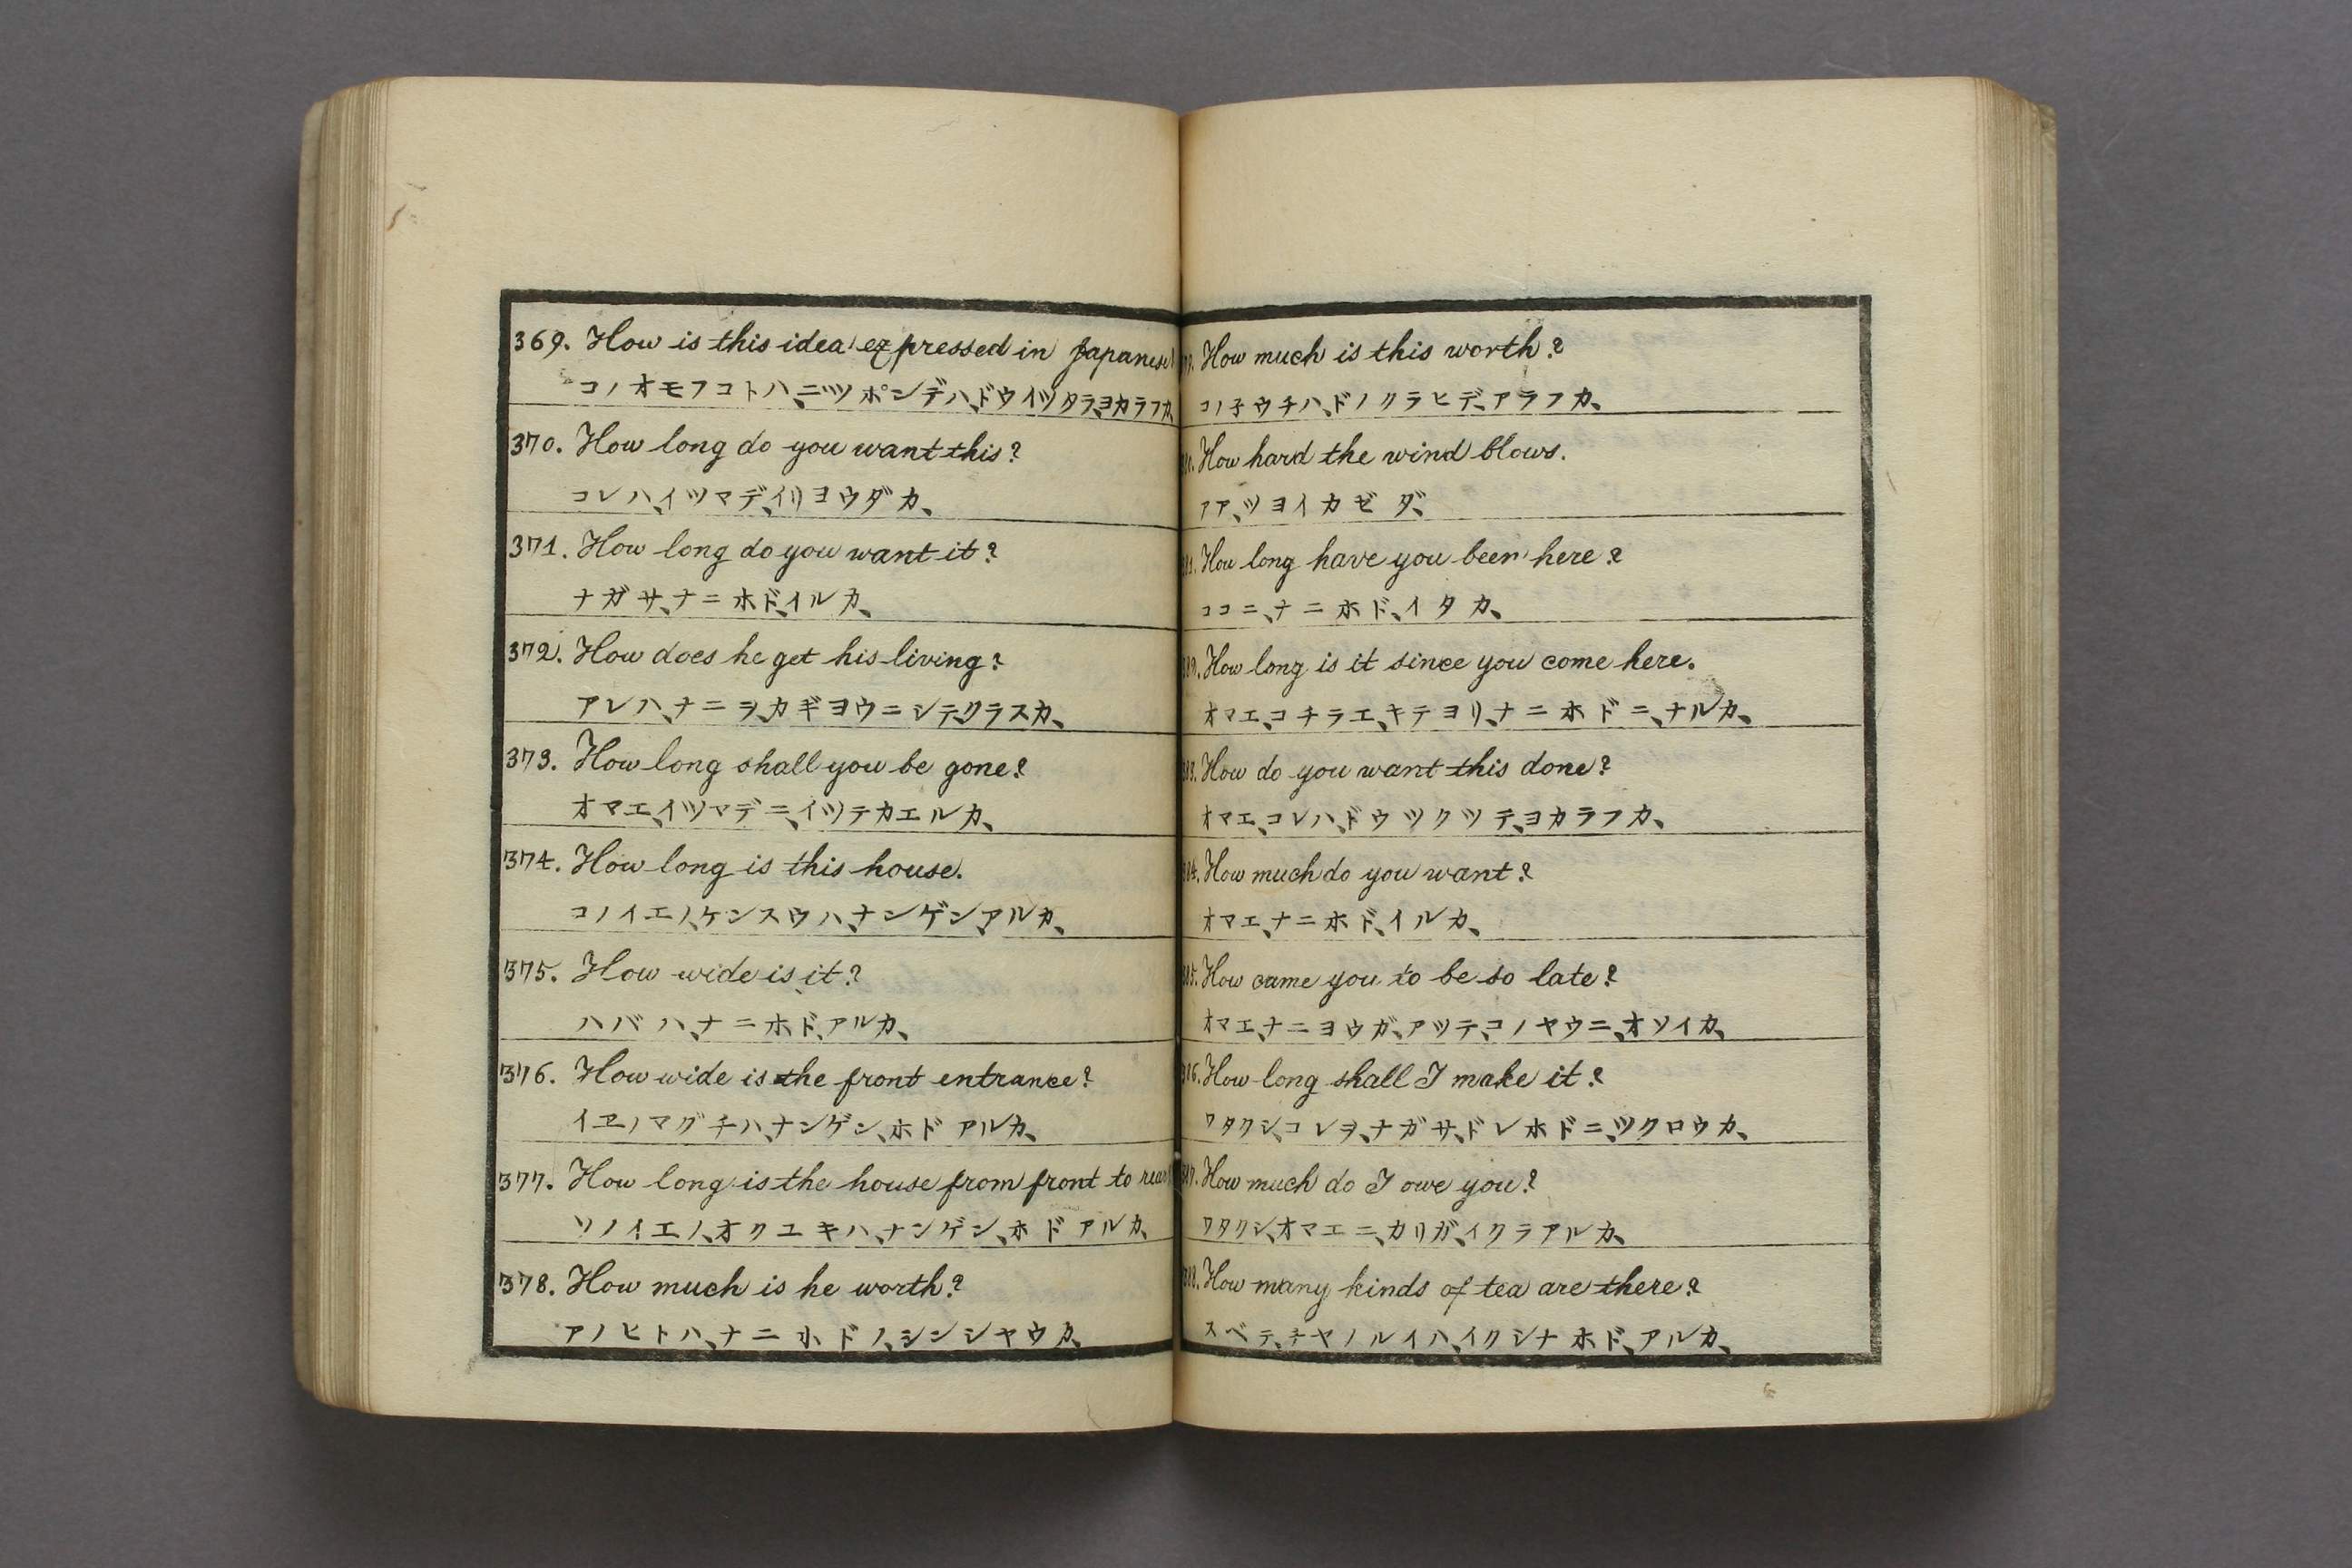 369. How is this idea expressed in Japanese?
コノオモフコトハ、ニツポンデハ、ドウイツタラ、ヨカラフカ、
370. How long do you want this?
コレハ、イツマデ、イリヨウダカ、
371. How long do you want it?
ナガサ、ナニホド、イルカ、
372. How does he get his living?
アレハ、ナニヲ、カギヨウニシテ、クラスカ、
373. How long shall you be gone?
オマエ、イツマデニ、イツテカエルカ、
374. How long is this house.
コノイエノ、ケンスウハ、ナンゲン、アルカ、
375. How wide is it?
ハバハ、ナニホド、アルカ、
376. How wide is the front entrance?
イヱノマグチハ、ナンゲン、ホドアルカ、
377. How long is the house from front to rear
ソノイエノ、オクユキハ、ナンゲン、ホドアルカ、
378. How much is he worth?
アノヒトハ、ナニホドノ、シンシヤウカ、
How much is this worth?
コノ子ウチハ、ドノクラヒデ、アラフカ、
How hard the wind blows.
アア、ツヨイカゼダ、
How long have you been here?
ココニ、ナニホド、イタカ、
How long is it since you come here.
オマエ、コチラエ、キテヨリ、ナニホドニ、ナルカ、
How do you want this done?
オマエ、コレハ、ドウツクツテ、ヨカラフカ、
How much do you want?
オマエ、ナニホド、イルカ、
How came you to be so late?
オマエ、ナニヨウガ、アツテ、コノヤウニ、オソイカ、
How long shall I make it?
ワタクシ、コレヲ、ナガサ、ドレホドニ、ツクロウカ、
How much do I owe you?
ワタクシ、オマエニ、カリガ、イクラアルカ、
How many kinds of tea are there?
スベテ、チヤノルイハ、イクシナホド、アルカ、